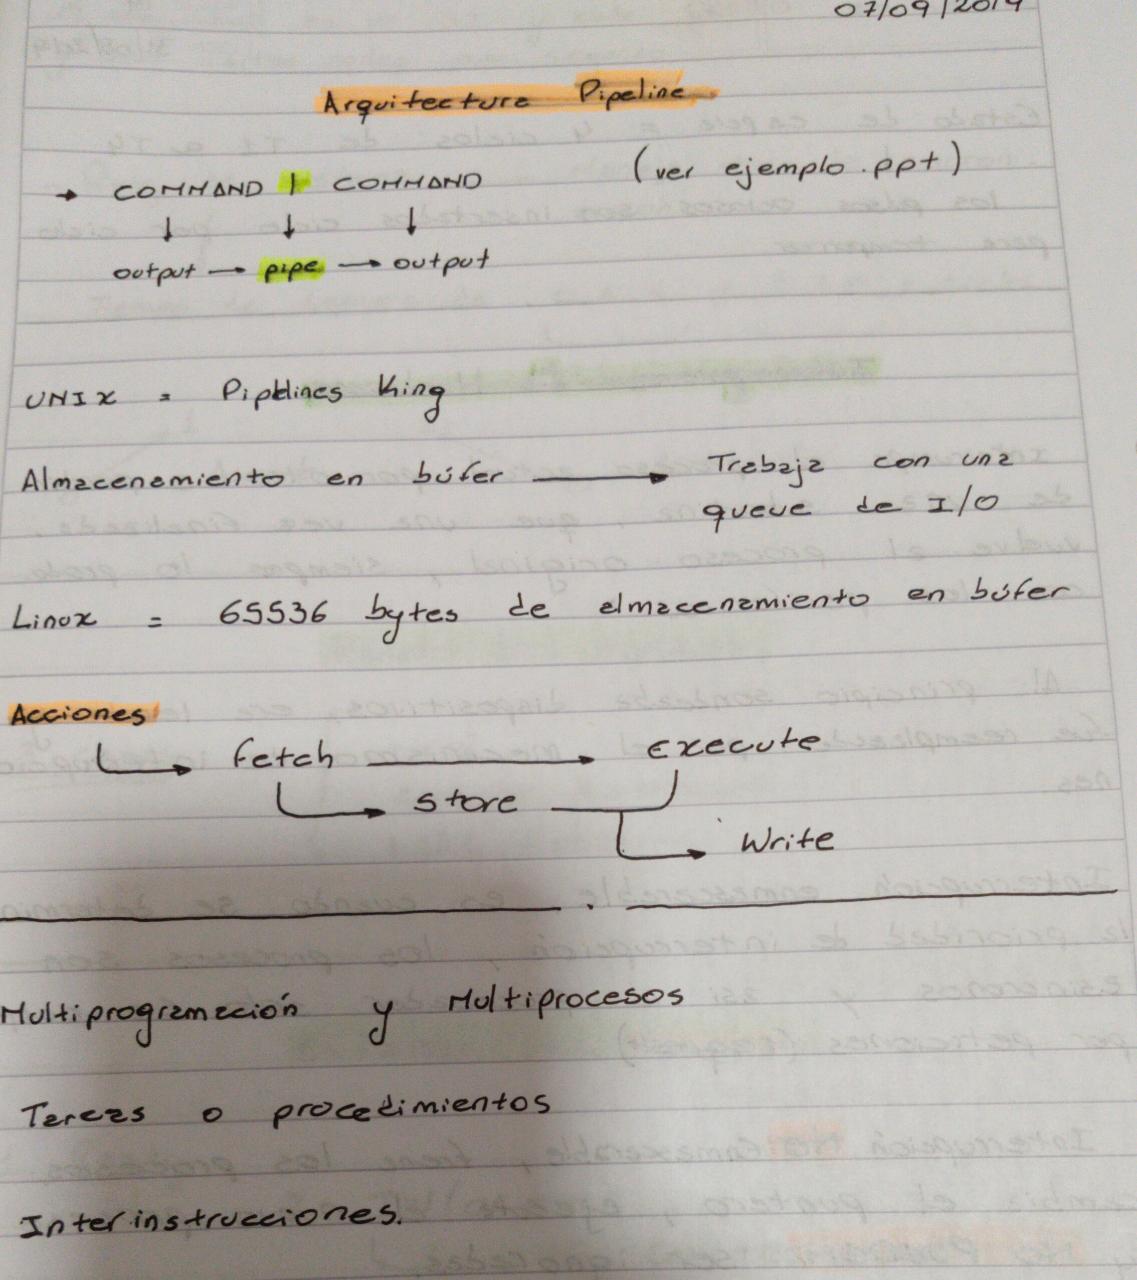 07/09/2019
Arquitectura Pipeline
→ COMMAND | COMMAND (ver ejemplo .ppt)
↓ ↓ ↓
output → pipe → output
UNIX = Pipelines King
Almacenamiento en búfer → Trabaja con una
queue de I/O
Linux = 65536 bytes de almacenamiento en búfer
Acciones
Fetch → Execute
Store
Write
Multiprogramación y Multiprocesos
Tareas o procedimientos
Inter instrucciones.